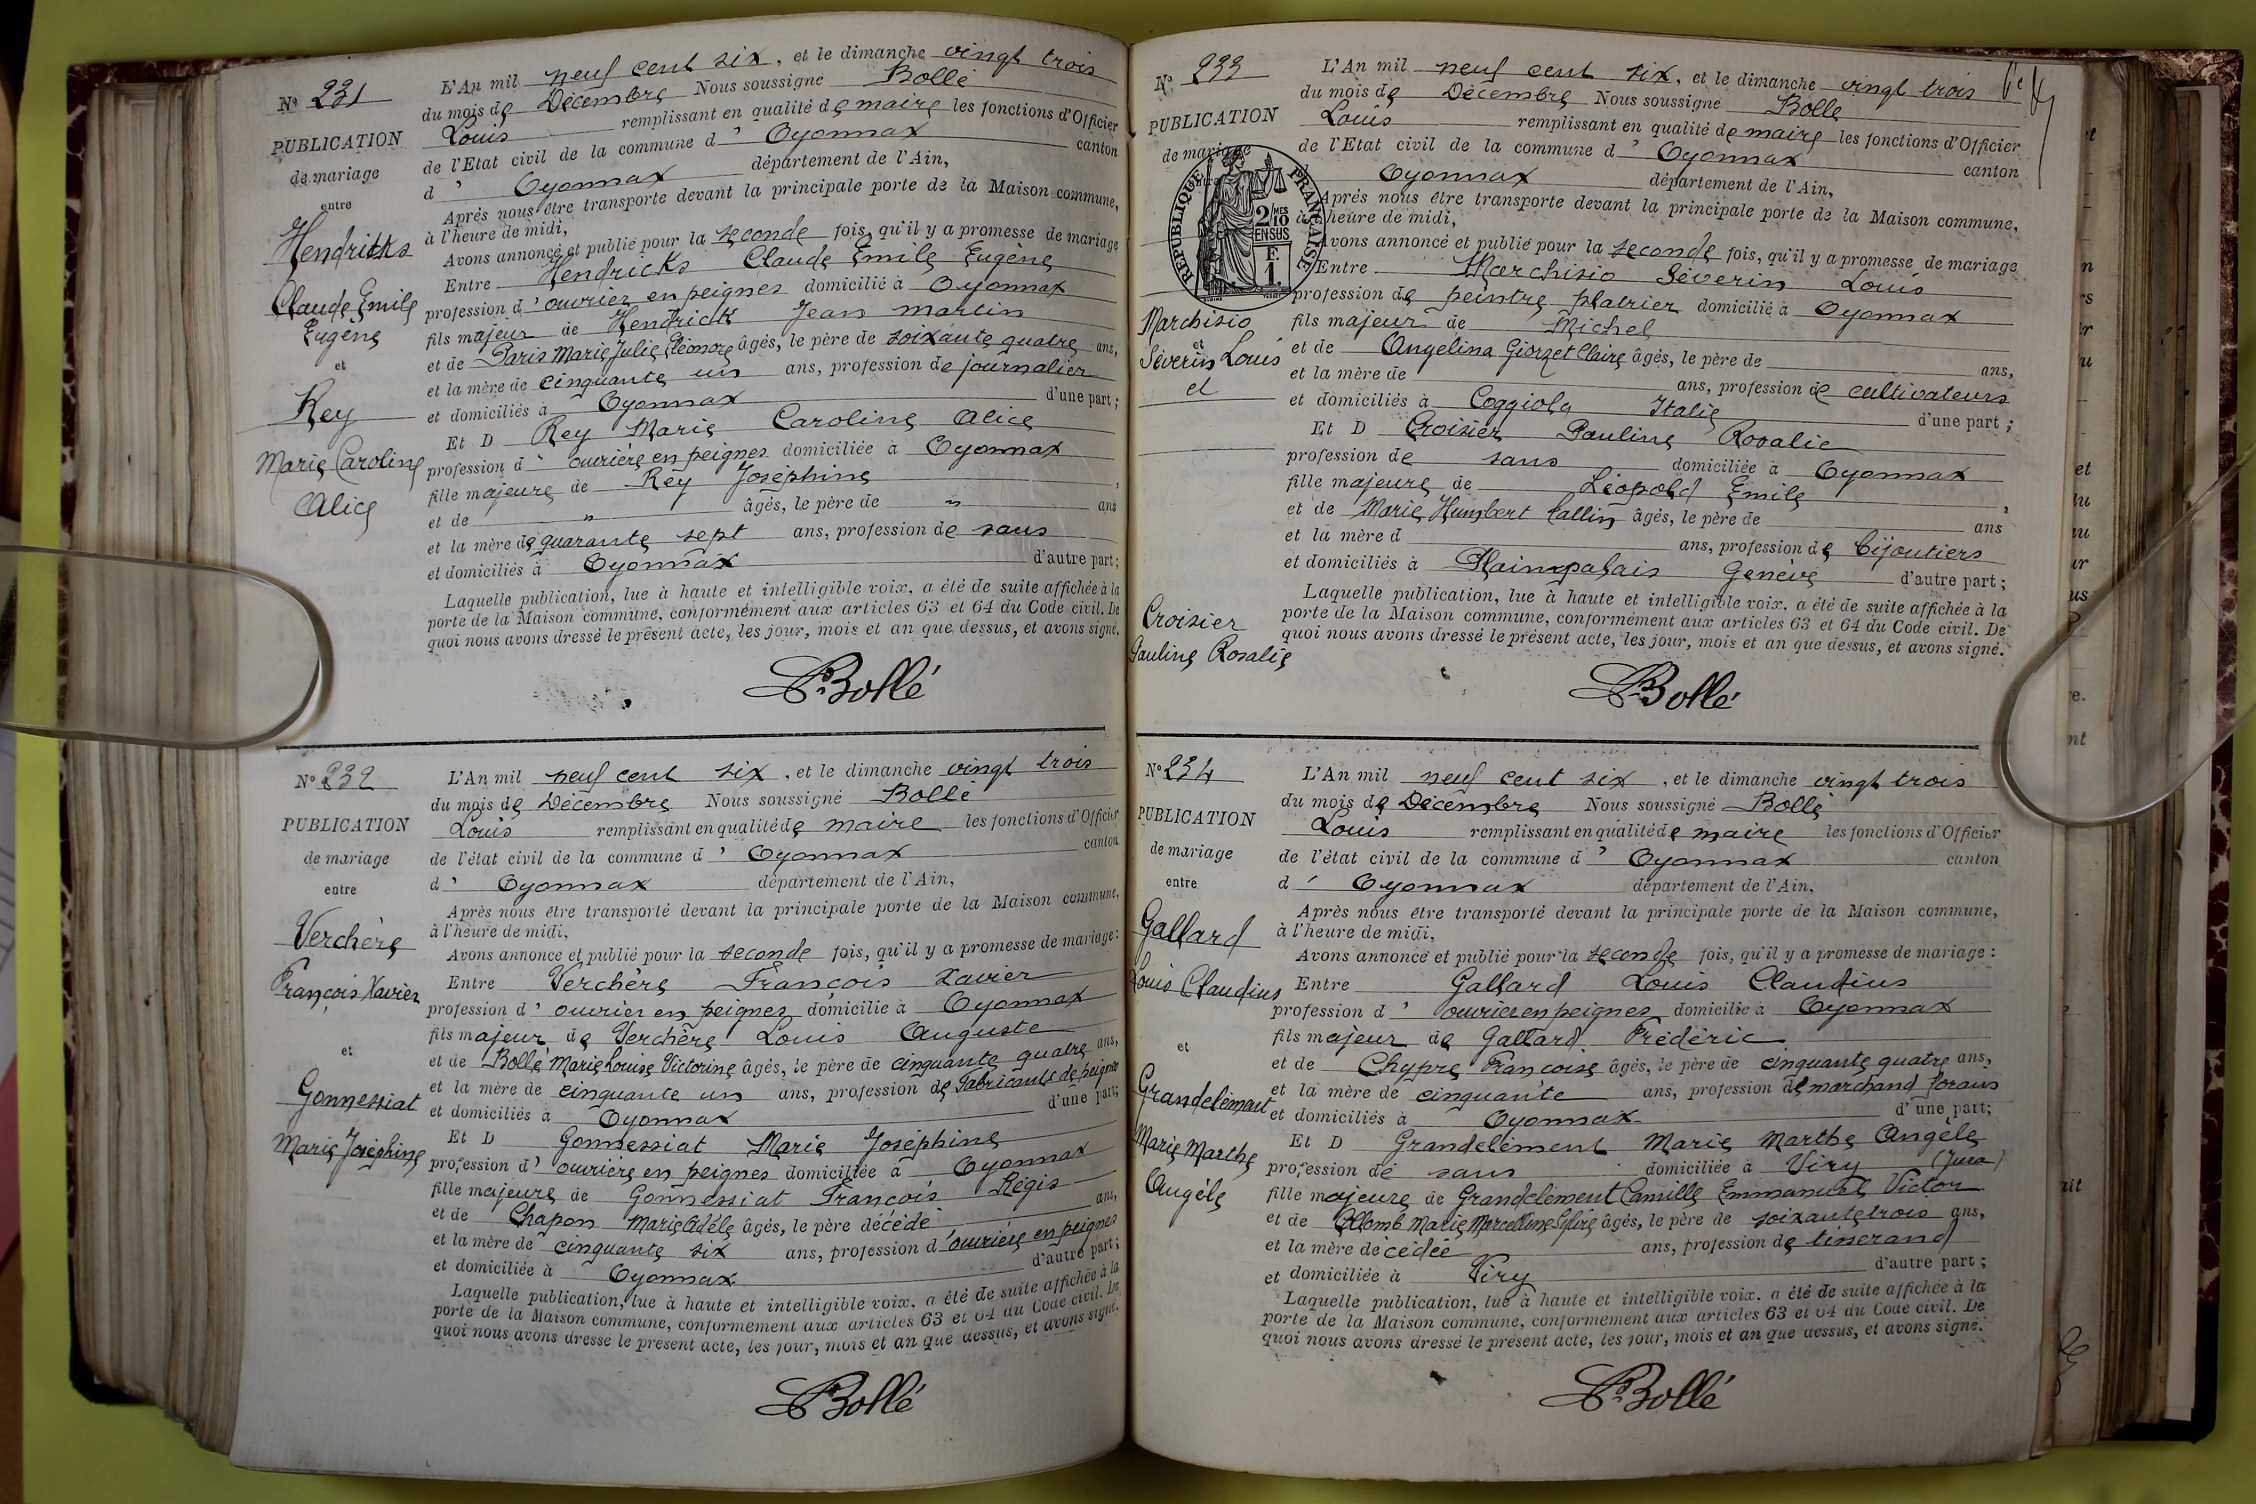 Nº 231
PUBLICATION
de mariage
entre
Hendricks
Claude Emile
Eugène
et
Rey
Marie Caroline
Alice
L'An mil neuf cent six, et le dimanche vingt trois
du mois de Décembre Nous soussigné Bollé
Louis remplissant en qualité de maire les fonctions d'Officier
de l'Etat civil de la commune d' Oyonnax canton
d' Oyonnax département de l'Ain,
Après nous être transporté devant la principale porte de la Maison commune,
à l'heure de midi,
Avons annoncé et publié pour la seconde fois, qu'il y a promesse de mariage
Entre Hendricks Claude Emile Eugène
profession d' ouvrier en peignes domicilié à Oyonnax
fils majeur de Hendricks Jean Martin
et de Paris Marie Julie Eléonore âgés, le père de soixante quatre ans,
et la mère de cinquante un ans, profession de journalier
et domiciliés à Oyonnax d'une part;
Et D Rey Marie Caroline Alice
profession d' ouvrière en peignes domiciliée à Oyonnax
fille majeure de Rey Joséphine,
et de " âgés, le père de " ans
et la mère de quarante sept ans, profession de sans
et domiciliés à Oyonnax d'autre part;
Laquelle publication, lue à haute et intelligible voix, a été de suite affichée à la
porte de la Maison commune, conformément aux articles 63 et 64 du Code civil. De
quoi nous avons dressé le présent acte, les jour, mois et an que dessus, et avons signé.
L. Bollé
Nº 232
PUBLICATION
de mariage
entre
Verchère
François Xavier
et
Gonnessiat
Marie Joséphine
L'An mil neuf cent six, et le dimanche vingt trois
du mois de Décembre Nous soussigné Bollé
Louis remplissant en qualité de maire les fonctions d'Officier
de l'état civil de la commune d' Oyonnax canton
d' Oyonnax département de l'Ain,
Après nous être transporté devant la principale porte de la Maison commune,
à l'heure de midi,
Avons annoncé et publié pour la seconde fois, qu'il y a promesse de mariage:
Entre Verchère François Xavier
profession d' ouvrier en peignes domicilié à Oyonnax
fils majeur de Verchère Louis Auguste
et de Bollé Marie Louise Victorine âgés, le père de cinquante quatre ans,
et la mère de cinquante un ans, profession de fabricants de peignes
et domiciliés à Oyonnax d'une part;
Et D Gonnessiat Marie Joséphine
profession d' ouvrière en peignes domiciliée à Oyonnax
fille majeure de Gonnessiat François Régis
et de Chapon Marie Adèle âgés, le père décédé ans,
et la mère de cinquante six ans, profession d'ouvrière en peignes
et domiciliée à Oyonnax d'autre part;
Laquelle publication, lue à haute et intelligible voix, a été de suite affichée à la
porte de la Maison commune, conformément aux articles 63 et 64 du Code civil. De
quoi nous avons dressé le présent acte, les jour, mois et an que dessus, et avons signé.
L. Bollé
Nº 233
PUBLICATION
de mariage
entre
RÉPUBLIQUE FRANÇAISE
2/10MES
EN SUS
F.
1.
Marchisio
et
Séverin Louis
et
Croisier
Pauline Rosalie
L'An mil neuf cent six, et le dimanche vingt trois
du mois de Décembre Nous soussigné Bollé
Louis remplissant en qualité de maire les fonctions d'Officier
de l'Etat civil de la commune d' Oyonnax canton
Oyonnax département de l'Ain,
Après nous être transporté devant la principale porte de la Maison commune,
à l'heure de midi,
Avons annoncé et publié pour la seconde fois, qu'il y a promesse de mariage
Entre Marchisio Séverin Louis
profession de peintre platrier domicilié à Oyonnax
fils majeur de Michel
et de Angelina Giorzet Claire âgés, le père de ans,
et la mère de ans, profession de cultivateurs
et domiciliés à Coggiola Italie d'une part;
Et D Croisier Pauline Rosalie
profession de sans domiciliée à Oyonnax
fille majeure de Léopold Emile,
et de Marie Humbert Callin âgés, le père de ans
et la mère d ans, profession de bijoutiers
et domiciliés à Plainpalais Genève d'autre part;
Laquelle publication, lue à haute et intelligible voix, a été de suite affichée à la
porte de la Maison commune, conformément aux articles 63 et 64 du Code civil. De
quoi nous avons dressé le présent acte, les jour, mois et an que dessus, et avons signé.
L. Bollé
Nº 234
PUBLICATION
de mariage
entre
Gallard
Louis Claudius
et
Grandclément
Marie Marthe
Angèle
L'An mil neuf cent six, et le dimanche vingt trois
du mois de Décembre Nous soussigné Bollé
Louis remplissant en qualité de maire les fonctions d'Officier
de l'état civil de la commune d' Oyonnax canton
d' Oyonnax département de l'Ain,
Après nous être transporté devant la principale porte de la Maison commune,
à l'heure de midi,
Avons annoncé et publié pour la seconde fois, qu'il y a promesse de mariage:
Entre Gallard Louis Claudius
profession d' ouvrier en peignes domicilié à Oyonnax
fils majeur de Gallard Frédéric
et de Chypre Françoise âgés, le père de cinquante quatre ans,
et la mère de cinquante ans, profession de marchand forains
et domiciliés à Oyonnax d'une part;
Et D Grandclément Marie Marthe Angèle
profession de sans domiciliée à Viry (Jura)
fille majeure de Grandclément Camille Emmanuel Victor
et de Collomb Marie Marcelline âgés, le père de soixante trois ans,
et la mère décédée ans, profession de tisserand
et domiciliée à Viry d'autre part;
Laquelle publication, lue à haute et intelligible voix, a été de suite affichée à la
porte de la Maison commune, conformément aux articles 63 et 64 du Code civil. De
quoi nous avons dressé le présent acte, les jour, mois et an que dessus, et avons signé.
L. Bollé